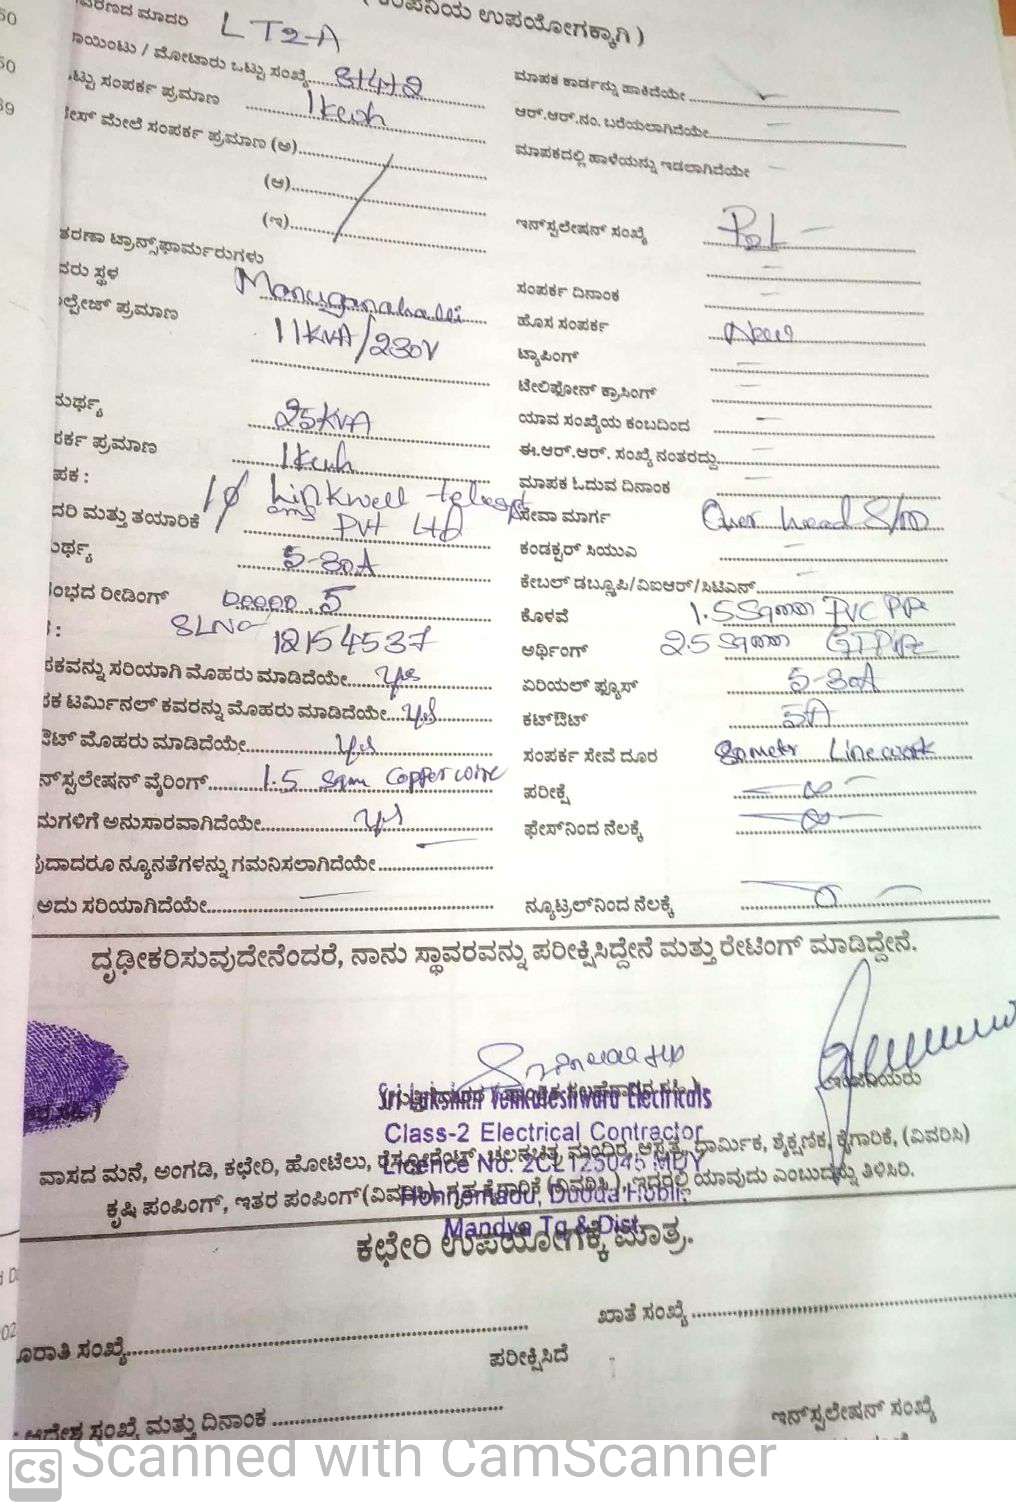 ಉಪಯೋಗಕ್ಕಾಗಿ )
ಮಾದರಿ LT2-A
/ ಮೋಟಾರು ಒಟ್ಟು ಸಂಖ್ಯೆ 3+4+2
ಮಾಪಕ ಕಾರ್ಡನ್ನು ಹಾಕಿದೆಯೇ
ಸಂಪರ್ಕ ಪ್ರಮಾಣ 1kwh
ಆರ್.ಆರ್.ನಂ. ಬರೆಯಲಾಗಿದೆಯೇ
ಮೇಲೆ ಸಂಪರ್ಕ ಪ್ರಮಾಣ (ಅ)
ಮಾಪಕದಲ್ಲಿ ಹಾಳೆಯನ್ನು ಇಡಲಾಗಿದೆಯೇ
(ಆ)
(ಇ)
ಇನ್‌ಸ್ಟಲೇಷನ್ ಸಂಖ್ಯೆ
ಟ್ರಾನ್ಸ್‌ಫಾರ್ಮರುಗಳು
ಸ್ಥಳ Manuganahalli
ಸಂಪರ್ಕ ದಿನಾಂಕ
ಪ್ರಮಾಣ 11KVA/230V
ಹೊಸ ಸಂಪರ್ಕ New
ಟ್ಯಾಪಿಂಗ್
ಟೆಲಿಫೋನ್ ಕ್ರಾಸಿಂಗ್
25KVA
ಯಾವ ಸಂಖ್ಯೆಯ ಕಂಬದಿಂದ
ಪ್ರಮಾಣ 1kwh
ಈ.ಆರ್.ಆರ್. ಸಂಖ್ಯೆ ನಂತರದ್ದು
ಮಾಪಕ ಓದುವ ದಿನಾಂಕ
1φ Linkwell
ಮತ್ತು ತಯಾರಿಕೆ PVT LTD
ಸೇವಾ ಮಾರ್ಗ Over head
5-30A
ಕಂಡಕ್ಟರ್ ಸಿಯುಎ
ರೀಡಿಂಗ್ 00000.5
ಕೇಬಲ್ ಡಬ್ಲ್ಯೂಪಿ/ವಿಐಆರ್/ಸಿಟಿಎನ್
SLNo 12154537
ಕೊಳವೆ 1.5Sqmm PVC Pipe
ಅರ್ಥಿಂಗ್ 2.5 Sqmm GI Pipe
ಸರಿಯಾಗಿ ಮೊಹರು ಮಾಡಿದೆಯೇ yes
ಏರಿಯಲ್ ಫ್ಯೂಸ್ 5-30A
ಟರ್ಮಿನಲ್ ಕವರನ್ನು ಮೊಹರು ಮಾಡಿದೆಯೇ yes
ಕಟ್‌ಔಟ್ 5A
ಮೊಹರು ಮಾಡಿದೆಯೇ yes
ಸಂಪರ್ಕ ಸೇವೆ ದೂರ 30meter Line work
ವೈರಿಂಗ್ 1.5 Sqm Copper wire
ಪರೀಕ್ಷೆ
ಅನುಸಾರವಾಗಿದೆಯೇ yes
ಫೇಸ್‌ನಿಂದ ನೆಲಕ್ಕೆ
ನ್ಯೂನತೆಗಳನ್ನು ಗಮನಿಸಲಾಗಿದೆಯೇ
ಅದು ಸರಿಯಾಗಿದೆಯೇ
ನ್ಯೂಟ್ರಲ್‌ನಿಂದ ನೆಲಕ್ಕೆ
ದೃಢೀಕರಿಸುವುದೇನೆಂದರೆ, ನಾನು ಸ್ಥಾವರವನ್ನು ಪರೀಕ್ಷಿಸಿದ್ದೇನೆ ಮತ್ತು ರೇಟಿಂಗ್ ಮಾಡಿದ್ದೇನೆ.
Sri Lakshmi Venkateshwara Electricals
Class-2 Electrical Contractor
Licence No. 2CL125045 MDY
Honnemadu, Dudda Hobli,
Mandya Tq & Dist.
ವಾಸದ ಮನೆ, ಅಂಗಡಿ, ಕಛೇರಿ, ಹೋಟೆಲು, ರೆಸ್ಟೋರೆಂಟ್, ಚಲನಚಿತ್ರ ಮಂದಿರ, ಆಸ್ಪತ್ರೆ, ಧಾರ್ಮಿಕ, ಶೈಕ್ಷಣಿಕ, ಕೈಗಾರಿಕೆ, (ವಿವರಿಸಿ)
ಕೃಷಿ ಪಂಪಿಂಗ್, ಇತರ ಪಂಪಿಂಗ್ (ವಿವರಿಸಿ), ಗೃಹ ಕೈಗಾರಿಕೆ (ವಿವರಿಸಿ), ಇದರಲ್ಲಿ ಯಾವುದು ಎಂಬುದನ್ನು ತಿಳಿಸಿರಿ.
ಕಛೇರಿ ಉಪಯೋಗಕ್ಕೆ ಮಾತ್ರ.
ಖಾತೆ ಸಂಖ್ಯೆ
ಸಂಖ್ಯೆ
ಪರೀಕ್ಷಿಸಿದೆ
ಆದೇಶ ಸಂಖ್ಯೆ ಮತ್ತು ದಿನಾಂಕ
ಇನ್‌ಸ್ಟಲೇಷನ್ ಸಂಖ್ಯೆ
CS Scanned with CamScanner